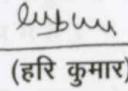 (हरि कुमार)